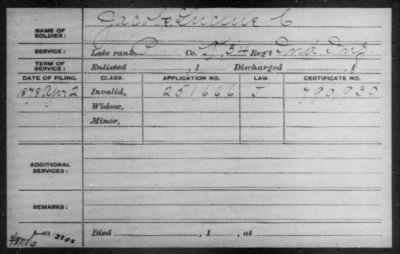 NAME OF SOLDIER: Jacobs Lucius C
SERVICE: Late rank P Co. H, 34 Reg't Ind Inf
TERM OF SERVICE: Enlisted , 1 Discharged , 1
DATE OF FILING. CLASS. APPLICATION NO. LAW. CERTIFICATE NO.
1878 Apr 2 Invalid, 251666 J 790,930
Widow,
Minor,
ADDITIONAL SERVICES:
REMARKS:
Died , 1 , at